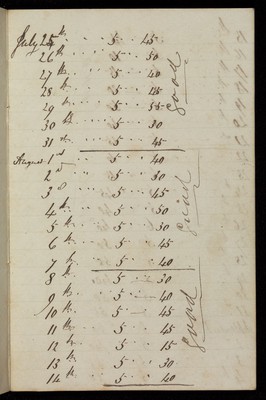 July 25th 5 45
26th 5 50
27th 5 40
28th 5
29th 5 55
30th 5 30
31st 5 45
good
August 1st 5 40
2d 5 30
3d 5 45
4th 5 50
5th 5 50
6th 5 45
7th 5 40
8th 5 30
9th 5 40
10th 5 45
11th 5 45
12th 5 15
13th 5 30
14th 5 40
good